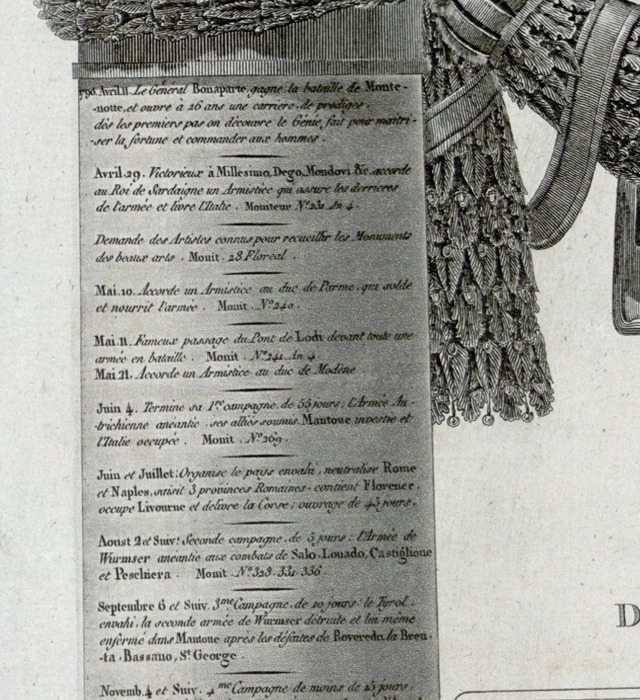 1796 Avril 11. Le Général Bonaparte, gagne la bataille de Monte-
-notte, et ouvre à 26 ans une carriere de prodiges.
dès les premiers pas on découvre le Génie fait pour maitri-
-ser la fortune et commander aux hommes.
Avril 29. Victorieux à Millesimo, Dego, Mondovi &c. accorde
au Roi de Sardaigne un Armistice qui assure les derrieres
de l'armée et livre l'Italie. Moniteur N.º 231. An 4.
Demande des Artistes connus pour recueillir les Monuments
des beaux arts. Monit. 28 Floréal.
Mai 10. Accorde un Armistice au duc de Parme, qui solde
et nourrit l'armée. Monit. N.º 240.
Mai 11. Fameux passage du Pont de Lodi devant toute une
armée en bataille. Monit. N.º 241. An 4.
Mai 21. Accorde un Armistice au duc de Modène
Juin 4. Termine sa 1.re campagne de 55 jours: l'Armée Au-
-trichienne aneantie. ses alliés soumis. Mantoue investie et
l'Italie occupée. Monit. N.º 269.
Juin et Juillet: Organise le pays envahi, neutralise Rome
et Naples, saisit 3 provinces Romaines. contient Florence.
occupe Livourne et délivre la Corse; ouvrage de 45 jours.
Aoust 2 et Suiv.t Seconde campagne de 5 jours: l'Armée de
Wurmser aneantie aux combats de Salo. Lonado, Castiglione
et Peschiera. Monit. N.º 328. 331. 336.
Septembre 6 et Suiv. 3.me Campagne de 10 jours: le Tyrol
envahi, la seconde armée de Wurmser detruite et lui même
enfermé dans Mantoue après les défaites de Roveredo, la Bren-
-ta. Bassano, S.t George.
Novemb. 4 et Suiv. 4.me Campagne de moins de 15 jours.
D